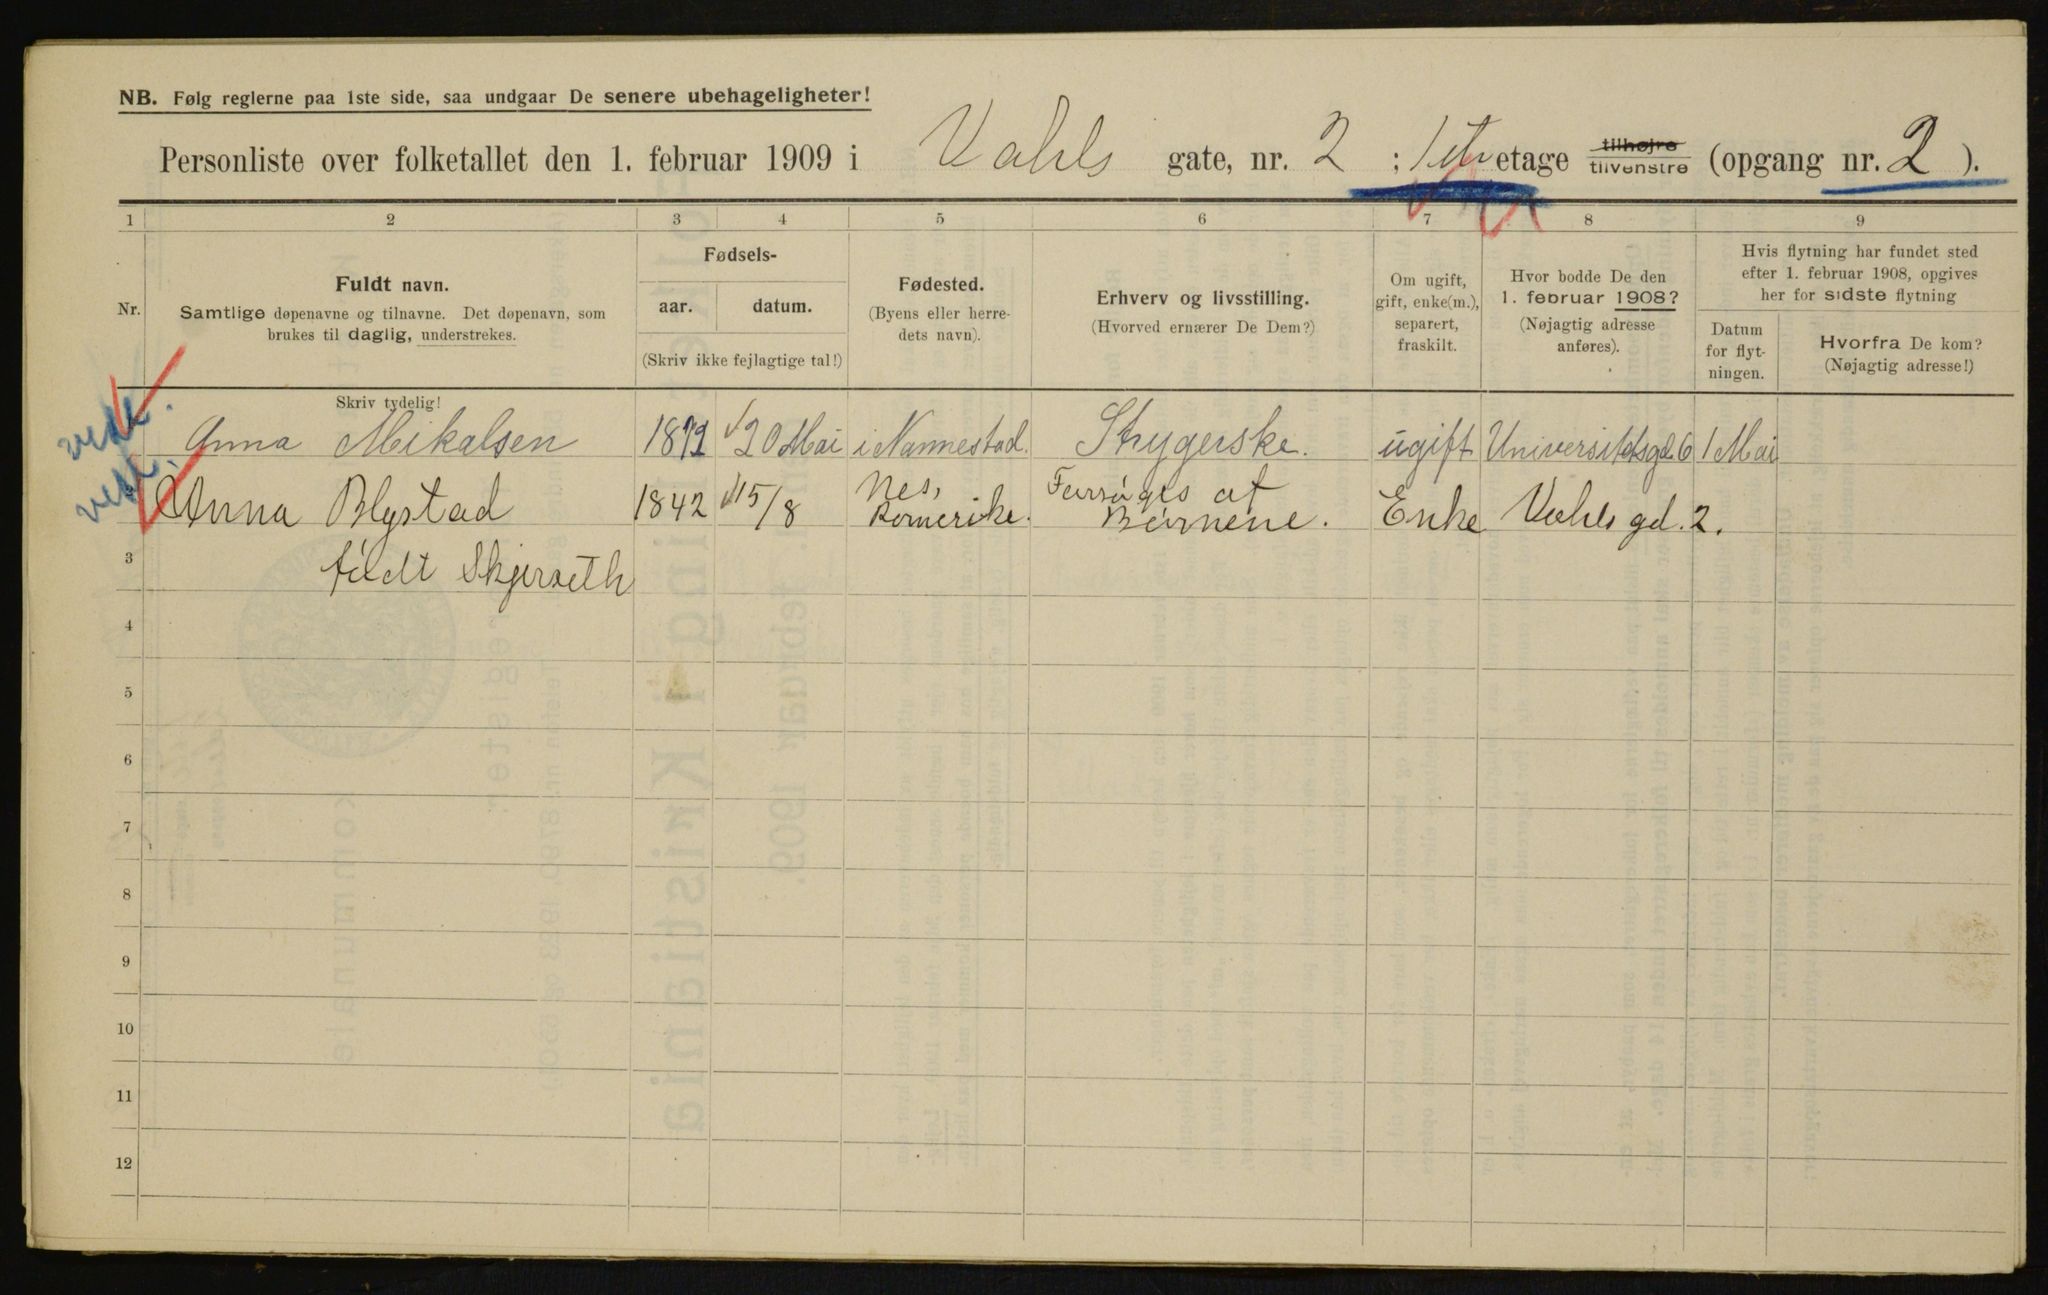 NB. Følg reglerne paa 1ste side, saa undgaar De senere ubehageligheter!
Personliste over folketallet den 1. februar 1909 i Vahls gate, nr. 2 ; 1ste etage tilhøjre tilvenstre (opgang nr. 2 ).
1 2 3 4 5 6 7 8 9
Nr.
Fuldt navn.
Samtlige døpenavne og tilnavne. Det døpenavn, som
brukes til daglig, understrekes.
Fødsels-
aar. datum.
(Skriv ikke fejlagtige tal!)
Fødested.
(Byens eller herre-
dets navn).
Erhverv og livsstilling.
(Hvorved ernærer De Dem?)
Om ugift,
gift, enke(m.),
separert,
fraskilt.
Hvor bodde De den
1. februar 1908?
(Nøjagtig adresse
anføres).
Hvis flytning har fundet sted
efter 1. februar 1908, opgives
her for sidste flytning
Datum
for flyt-
ningen.
Hvorfra De kom?
(Nøjagtig adresse!)
Skriv tydelig!
Anna Mikalsen 1872 20 Mai i Nannestad. Strygerske. ugift Universitetsgd 6 1 Mai
Anna Blystad 1842 15/8 Nes, Romerike. Forsøges af Børnene. Enke Vahls gd. 2.
3 født Skjerseth
4
5
6
7
8
9
10
11
12